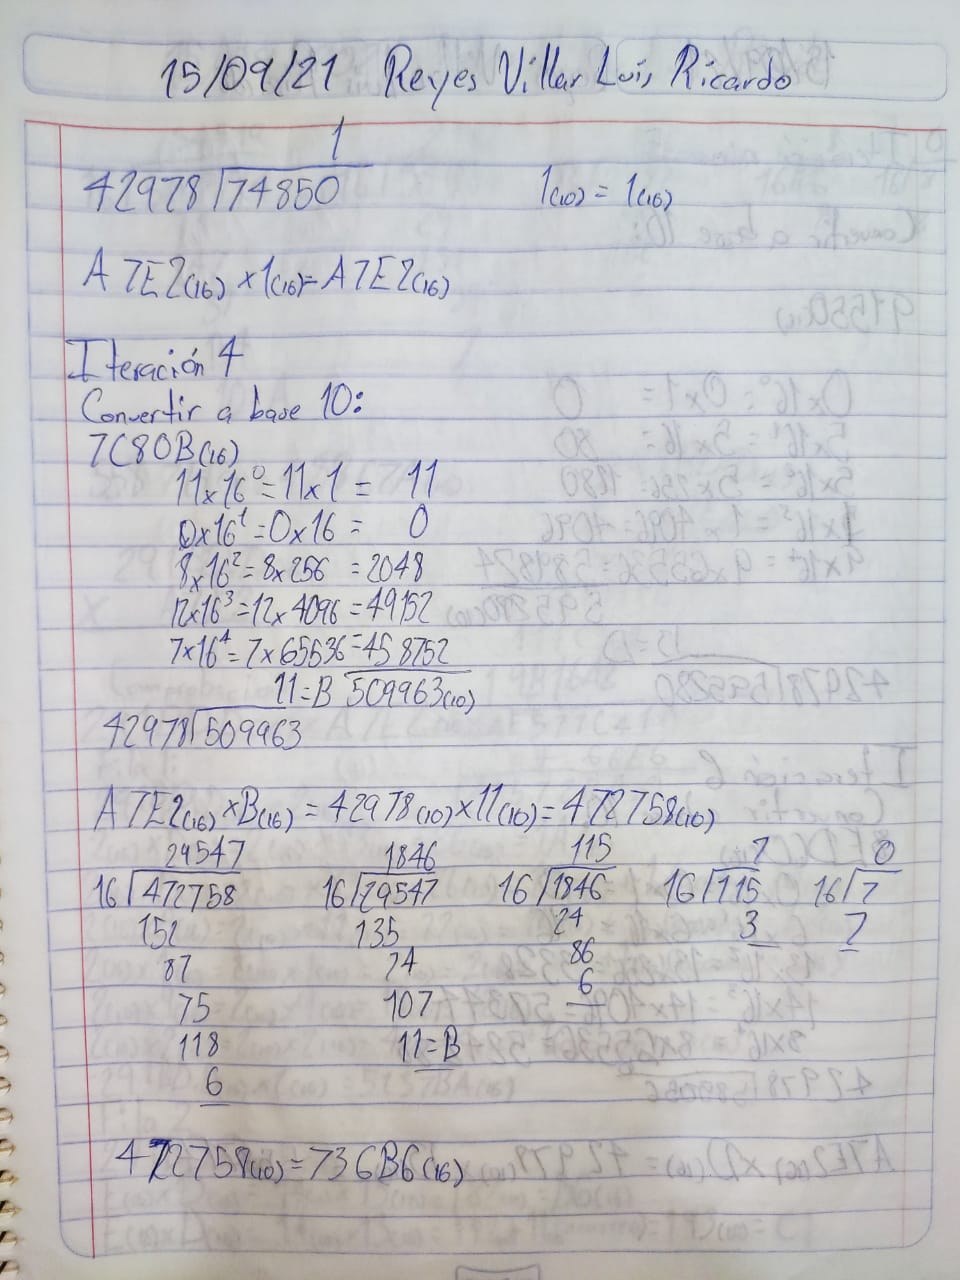 15/09/21 Reyes Villar Luis Ricardo
1
42978 74850 1(10) = 1(16)
A7E2(16) x 1(16) = A7E2(16)
Iteración 4
Convertir a base 10:
7C80B(16)
11x16⁰=11x1 = 11
0x16¹=0x16 = 0
8x16²=8x256 = 2048
12x16³=12x4096=49152
7x16⁴=7x65536=458752
11=B 509963(10)
42978 509963
A7E2(16)xB(16)=42978(10)x11(10)=472758(10)
29547 1846 115 7 0
16 472758 16 29547 16 1846 16 115 16 7
152 135 24 3 7
87 74 86
75 107 6
118 11=B
6
472758(10)=736B6(16)